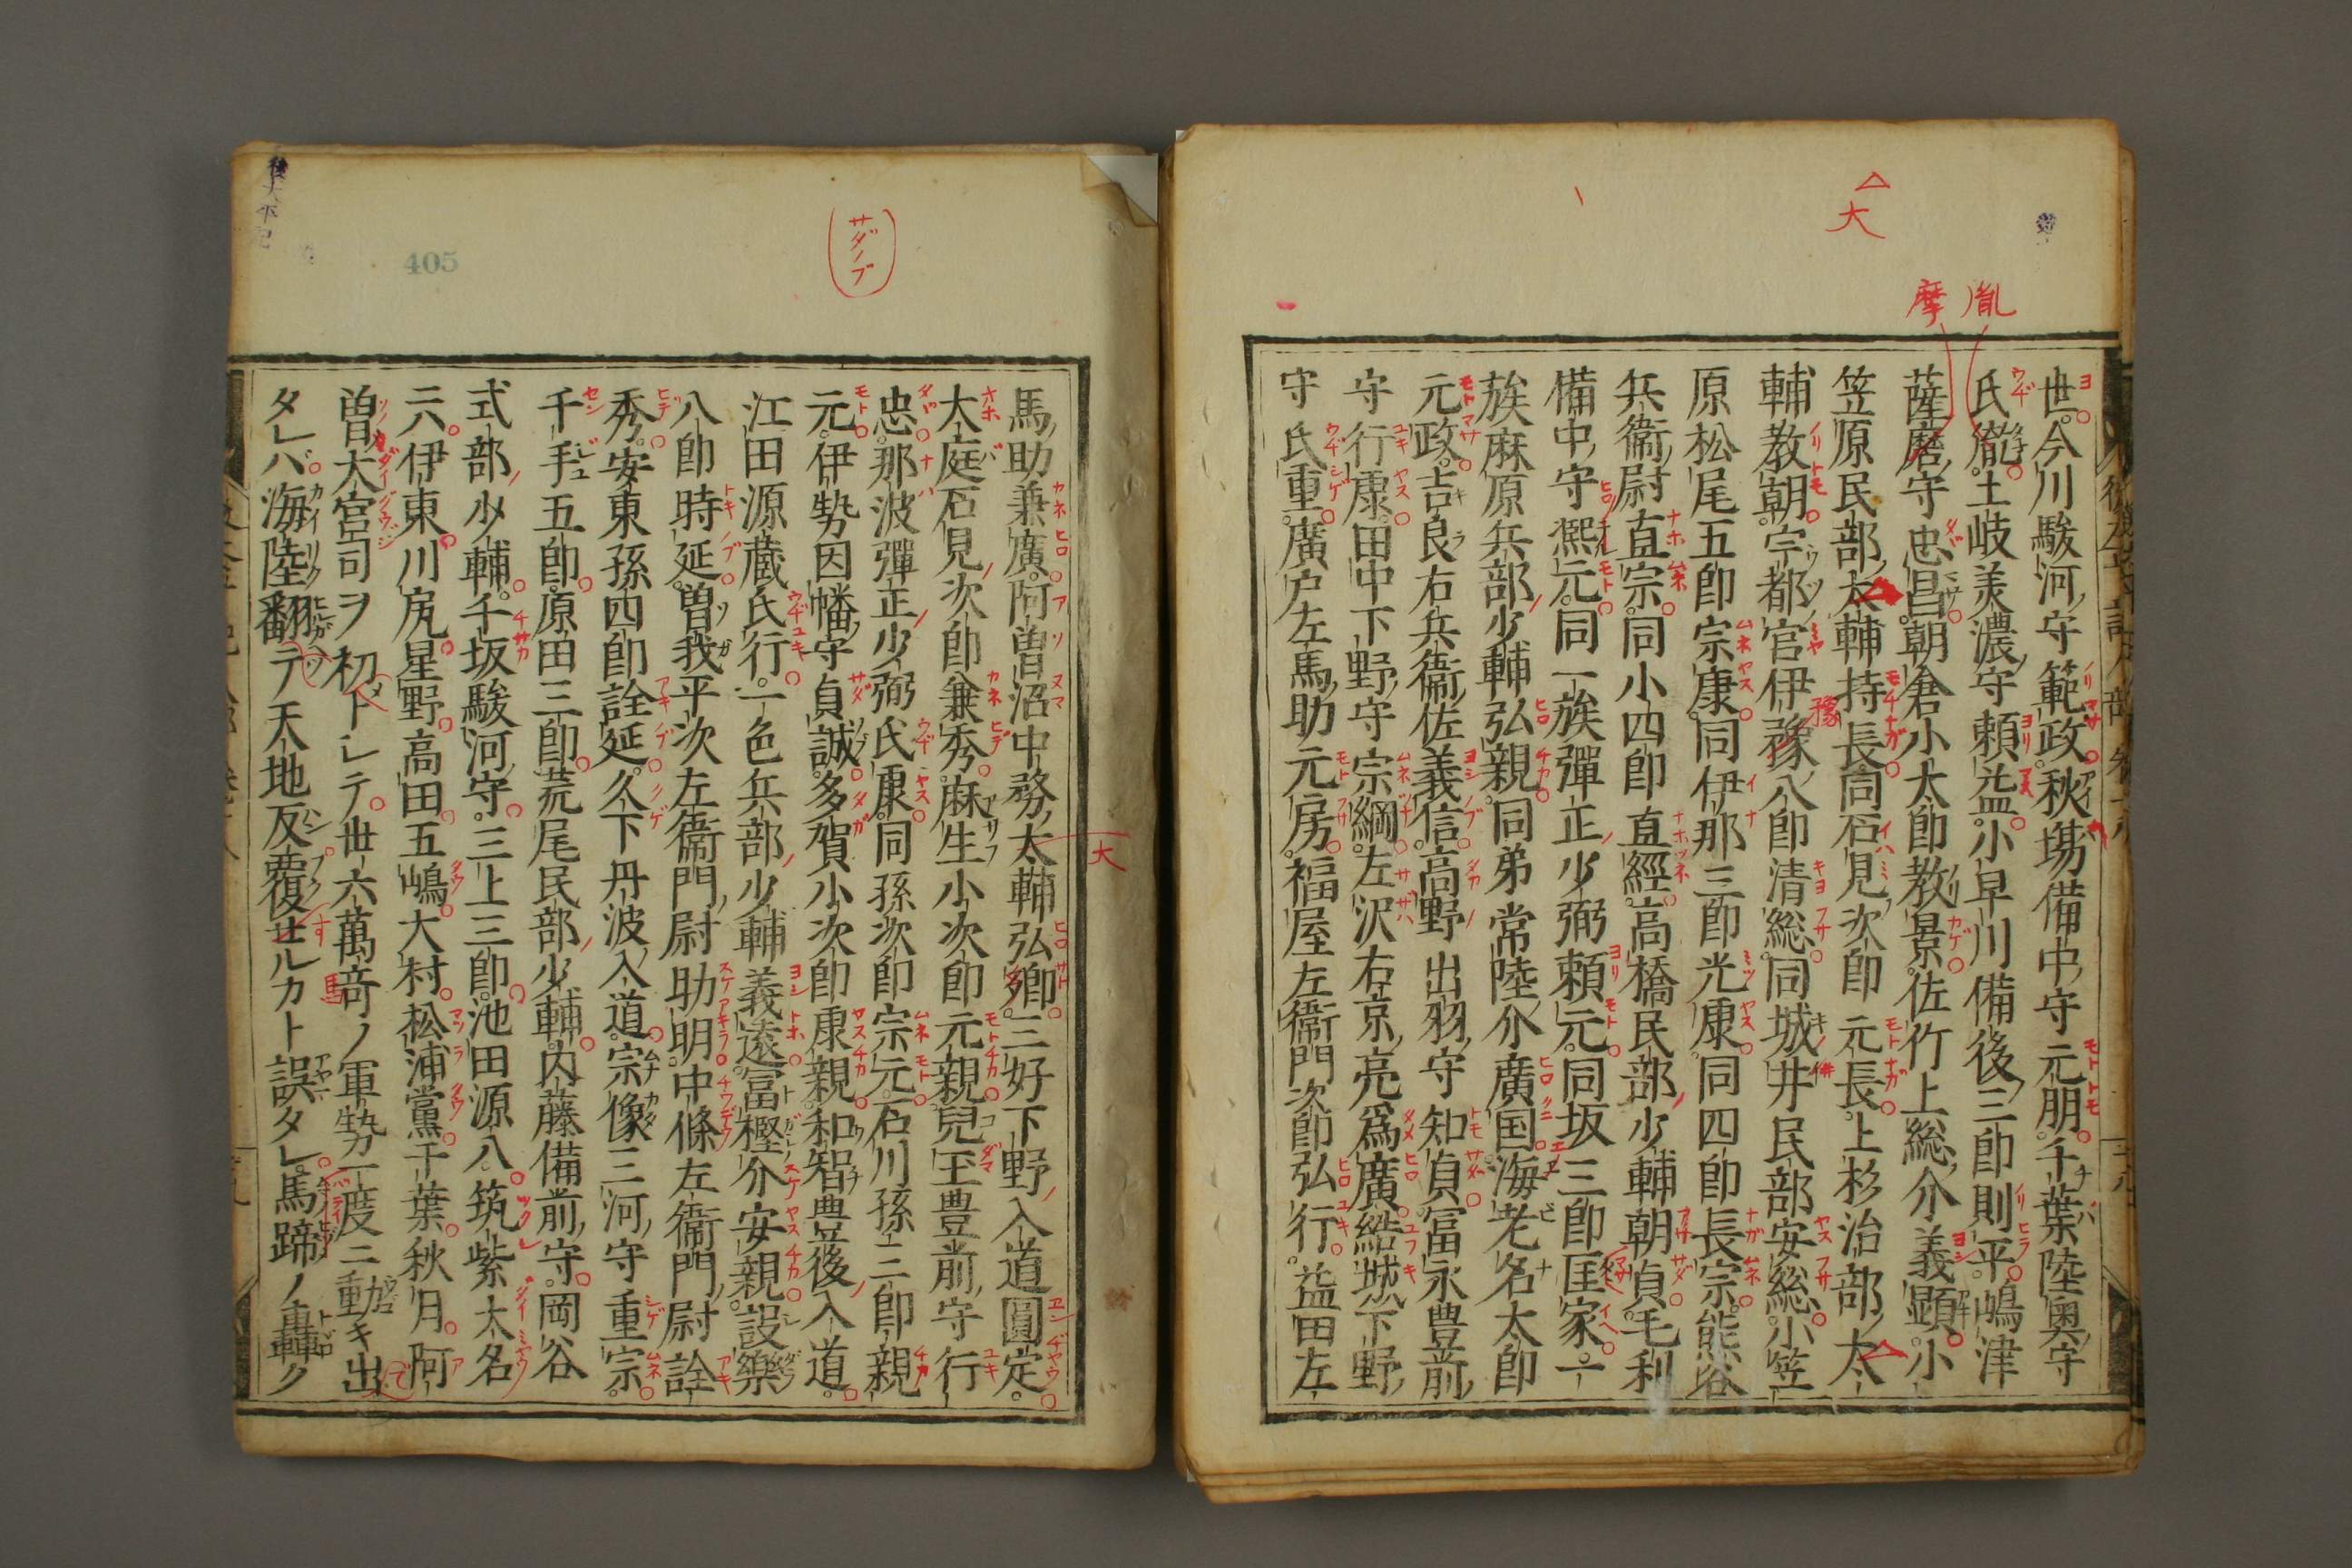 世今川駿河守範政秋場備中守元朋千葉陸奥守
氏胤土岐美濃守頼益小早川備後三郎則平嶋津
薩磨守忠昌朝倉小太郎教景佐竹上総介義顕小
笠原民部太輔持長同石見次郎元長上杉治部太
輔教朝宇都宮伊豫八郎清総同城井民部安総小笠
原松尾五郎宗康同伊那三郎光康同四郎長宗熊谷
兵衛尉直宗同小四郎直經高橋民部少輔朝貞毛利
備中守熈元同一族彈正少弼頼元同坂三郎匡家一
族麻原兵部少輔弘親同弟常陸介廣国海老名太郎
元政吉良右兵衛佐義信高野出羽守知貞冨永豊前
守行康田中下野守宗綱左沢右京亮爲廣結城下野
守氏重廣戸左馬助元房福屋左衛門次郎弘行益田左
馬助兼廣阿曽沼中務太輔弘郷三好下野入道圓定
大庭石見次郎兼秀麻生小次郎元親兒玉豊前守行
忠那波彈正少弼氏康同孫次郎宗元石川孫三郎親
元伊勢因幡守貞誠多賀小次郎康親和智豊後入道
江田源蔵氏行一色兵部少輔義遠冨樫介安親設樂
八郎時延曽我平次左衛門尉助明中條左衛門尉詮
秀安東孫四郎詮延久下丹波入道宗像三河守重宗
千手五郎原田三郎荒尾民部少輔内藤備前守岡谷
式部少輔千坂駿河守三上三郎池田源八筑紫大名
ニハ伊東川尻星野高田五嶋大村松浦黨千葉秋月阿
曽大宮司ヲ初トレテ丗六萬竒ノ軍勢一度ニ動キ出
タレバ海陸翻テ天地反覆せルカト誤タレ馬蹄ノ轟ク
△
大
胤
摩
(サダノブ)
大
405